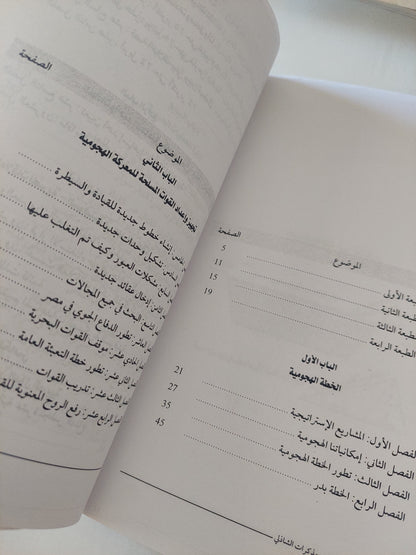 الموضوع
الصفحة
الأولى
5
الطبعة الثانية
11
الطبعة الثالثة
15
الطبعة الرابعة
19
الباب الأول
الخطة الهجومية
الفصل الأول: المشاريع الإستراتيجية
21
الفصل الثاني: إمكانياتنا الهجومية
27
الفصل الثالث: تطور الخطة الهجومية
35
الفصل الرابع: الخطة بدر
45
مذكرات الشاذلي
الموضوع
الصفحة
الباب الثاني
القوات المسلحة للمعركة الهجومية
إنشاء خطوط جديدة للقيادة والسيطرة
تشكيل وحدات جديدة
مشكلات العبور وكيف تم التغلب عليها
إدخال عقائد جديدة
البحث في جميع المجالات
تطور الدفاع الجوي في مصر
موقف القوات البحرية
عشر: تطور خطة التعبئة العامة
عشر: تدريب القوات
الرابع عشر: رفع الروح المعنوية